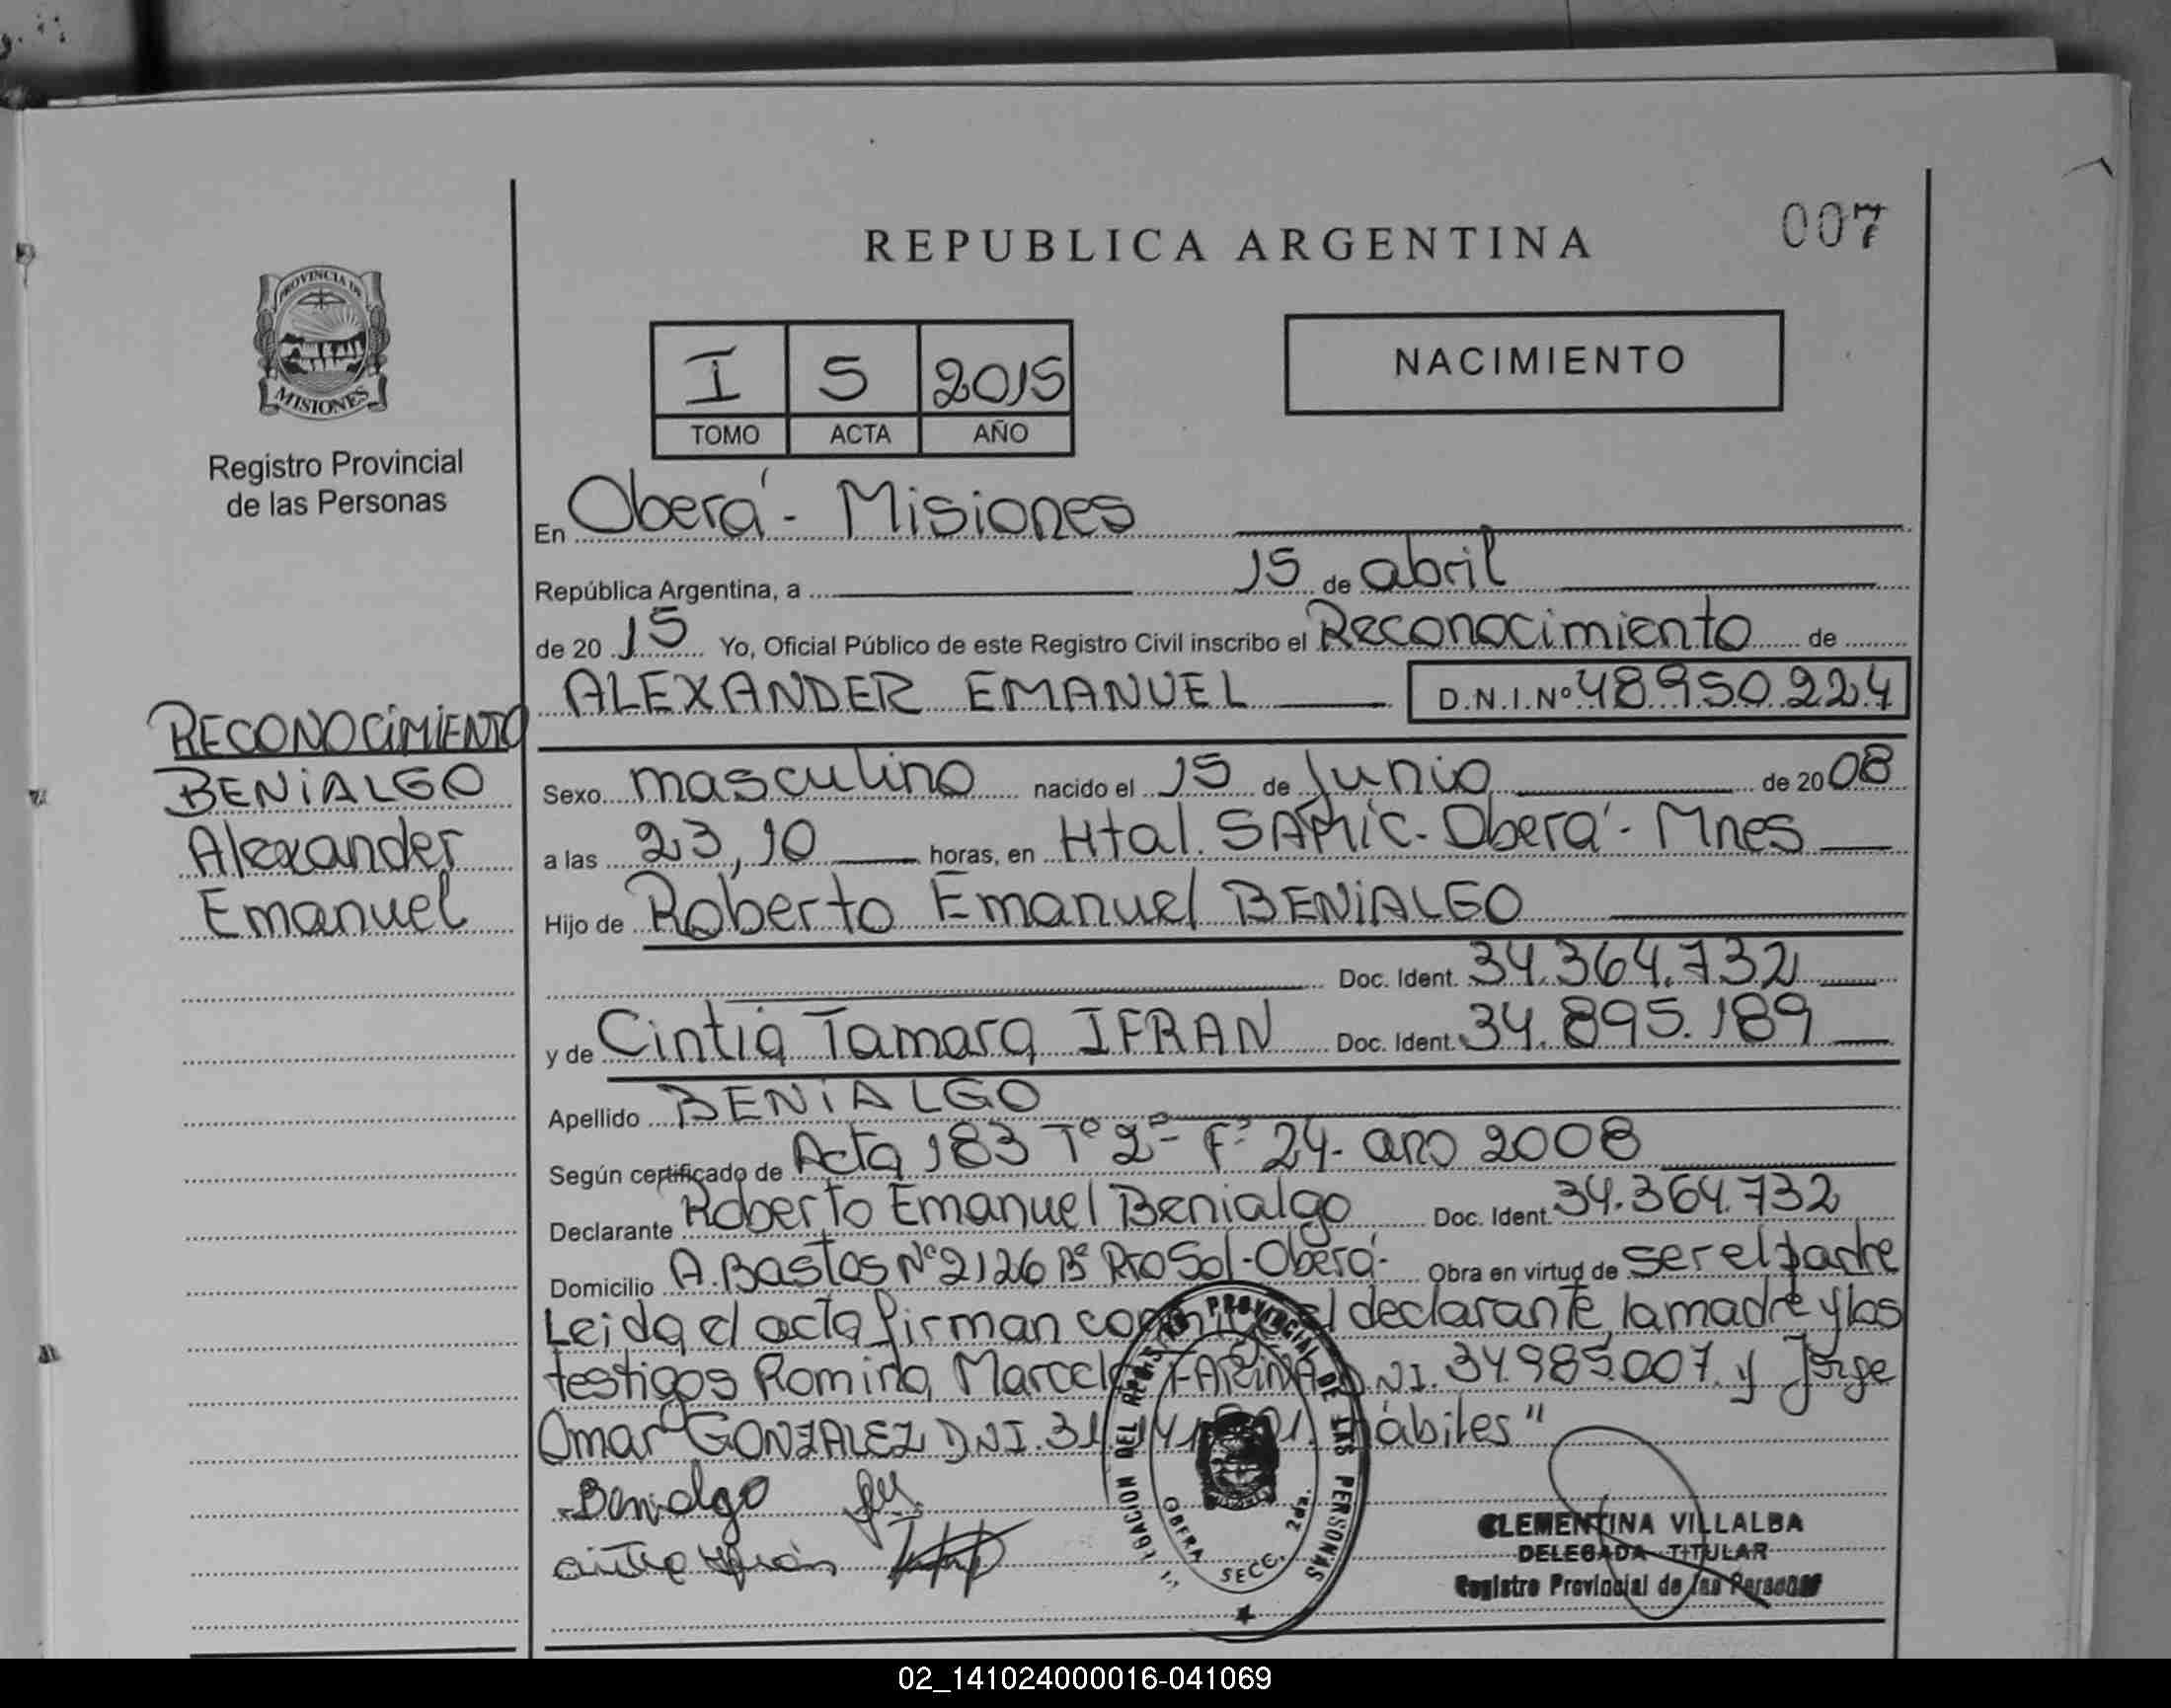 REPUBLICA ARGENTINA
007
PROVINCIA DE
MISIONES
Registro Provincial
de las Personas
I 5 2015
TOMO ACTA AÑO
NACIMIENTO
En Oberá - Misiones
República Argentina, a 15 de abril
de 20 15 Yo, Oficial Público de este Registro Civil inscribo el Reconocimiento de
ALEXANDER EMANUEL D.N.I.Nº 48.950.224
RECONOCIMIENTO
BENIALGO
Alexander
Emanuel
Sexo masculino nacido el 15 de Junio de 20 08
a las 23,10 horas, en Htal. SAMIC - Oberá - Mnes
Hijo de Roberto Emanuel BENIALGO
Doc. Ident. 34.364.732
y de Cintia Tamara IFRAN Doc. Ident. 34.895.189
Apellido BENIALGO
Según certificado de Acta 183 Tº 2º - Fº 24 - año 2008
Declarante Roberto Emanuel Benialgo Doc. Ident. 34.364.732
Domicilio A. Bastos Nº 2126 Bº Sol - Oberá - Obra en virtud de ser el padre
Leida el acta firman conmigo el declarante, la madre y los
testigos Romina Marcela FARIÑA D.N.I. 34.985.007 y Jorge
Omar GONZALEZ DNI. 31 hábiles"
Benialgo
DELEGACION DEL REGISTRO PROVINCIAL DE LAS PERSONAS
OBERA SECC. 2da.
CLEMENTINA VILLALBA
DELEGADA TITULAR
Registro Provincial de las Personas
02_141024000016-041069